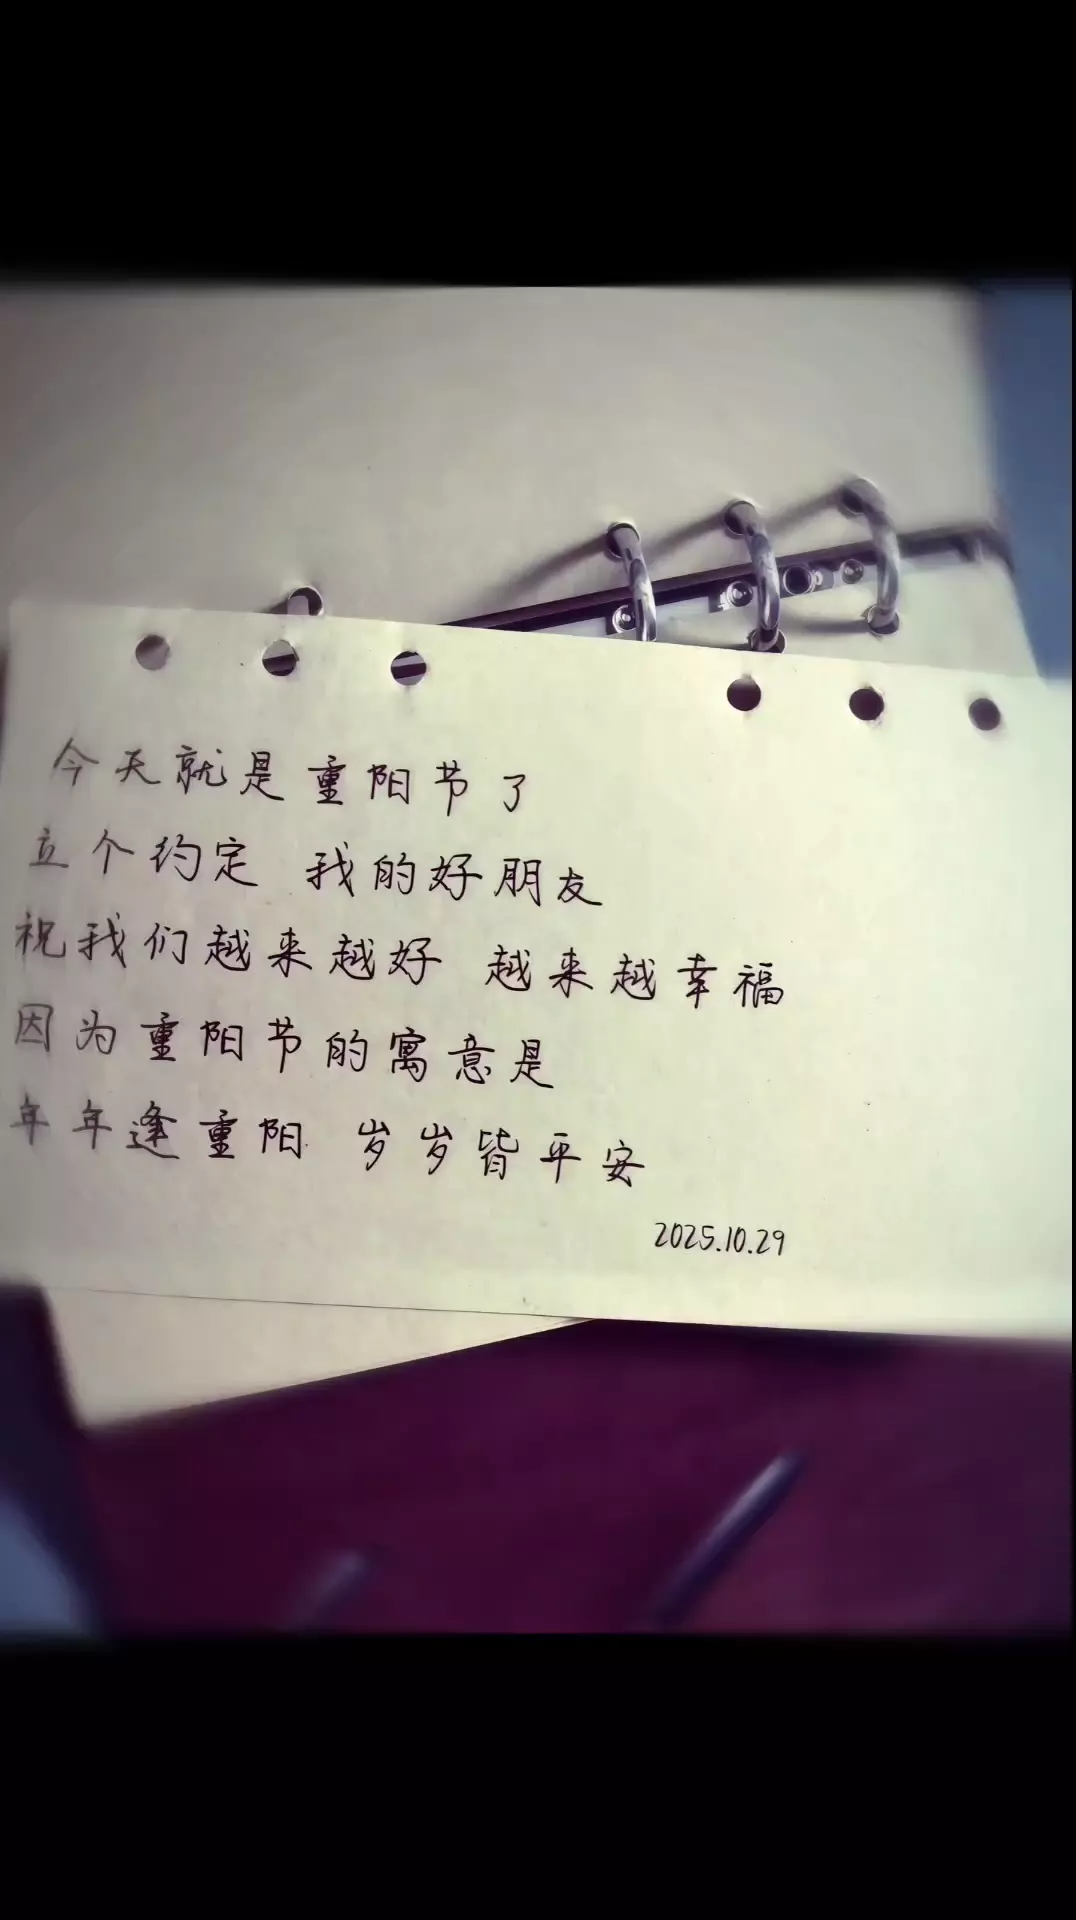 今天就是重阳节了
立个约定 我的好朋友
祝我们越来越好 越来越幸福
因为重阳节的寓意是
年年逢重阳 岁岁皆平安
2025.10.29